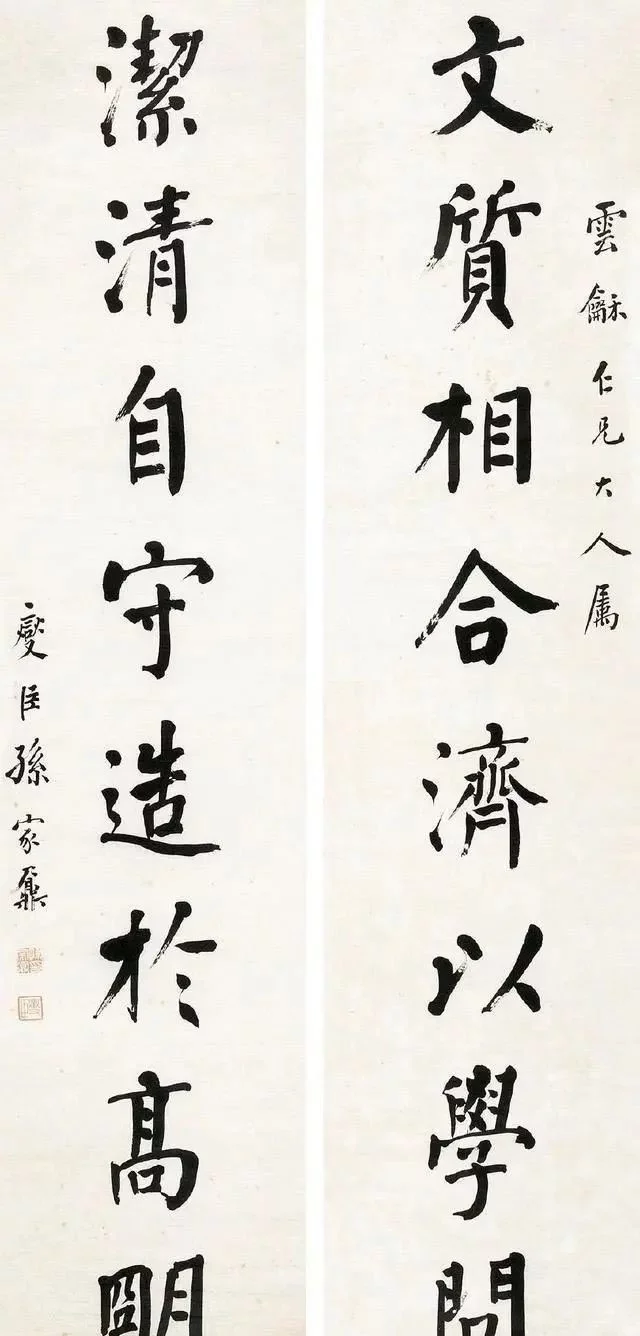 雲龢仁兄大人属
文質相合濟以學問
潔清自守造於高朙
燮臣孫家鼐